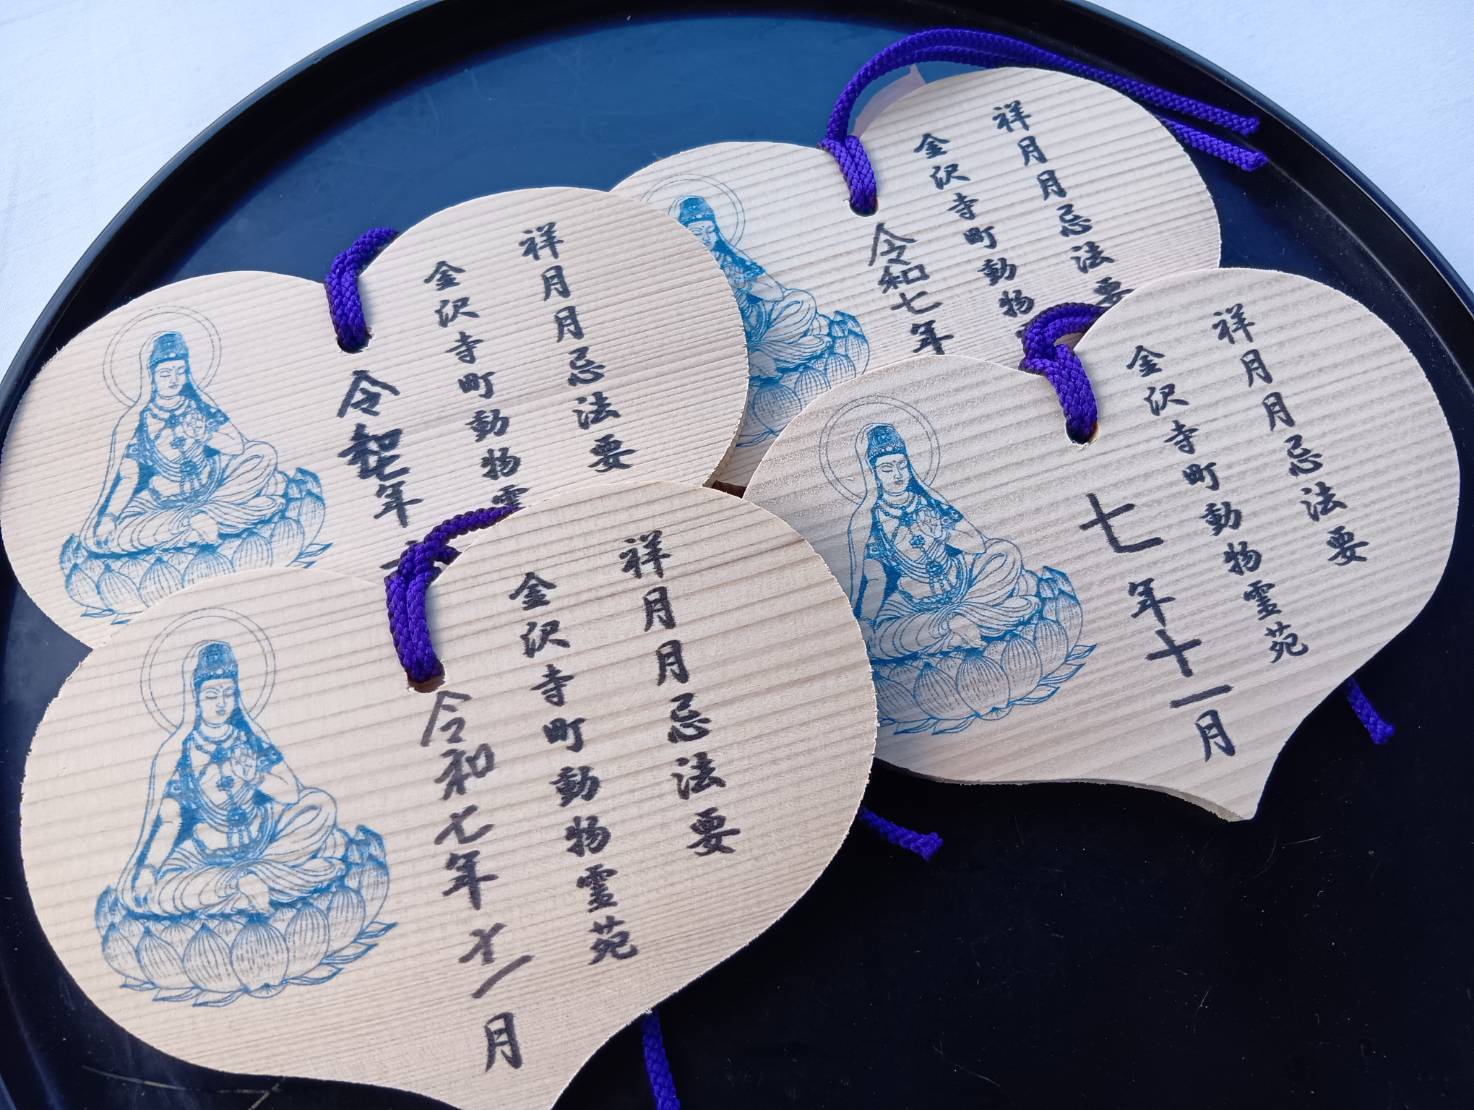 祥月月忌法要
金沢寺町動物霊
令和七年
祥月月忌法要
金沢寺町動物
令和七年
祥月月忌法要
金沢寺町動物霊苑
令和七年十一月
祥月月忌法要
金沢寺町動物霊苑
七年十一月